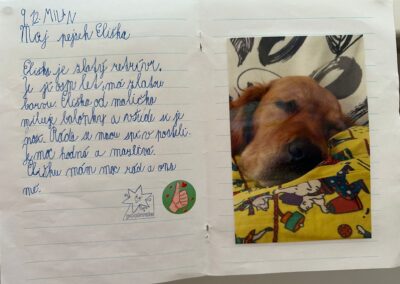 9. 12. MILAN
Můj pejsek Eliška
Eliška je zlatý retrívr.
Je jí osm let, má zlatou
barvu. Eliška od malička
miluje balónky a všude si je
nosí. Ráda se mnou spí v posteli.
Je moc hodná a mazlivá.
Elišku mám moc rád a ona
mě.